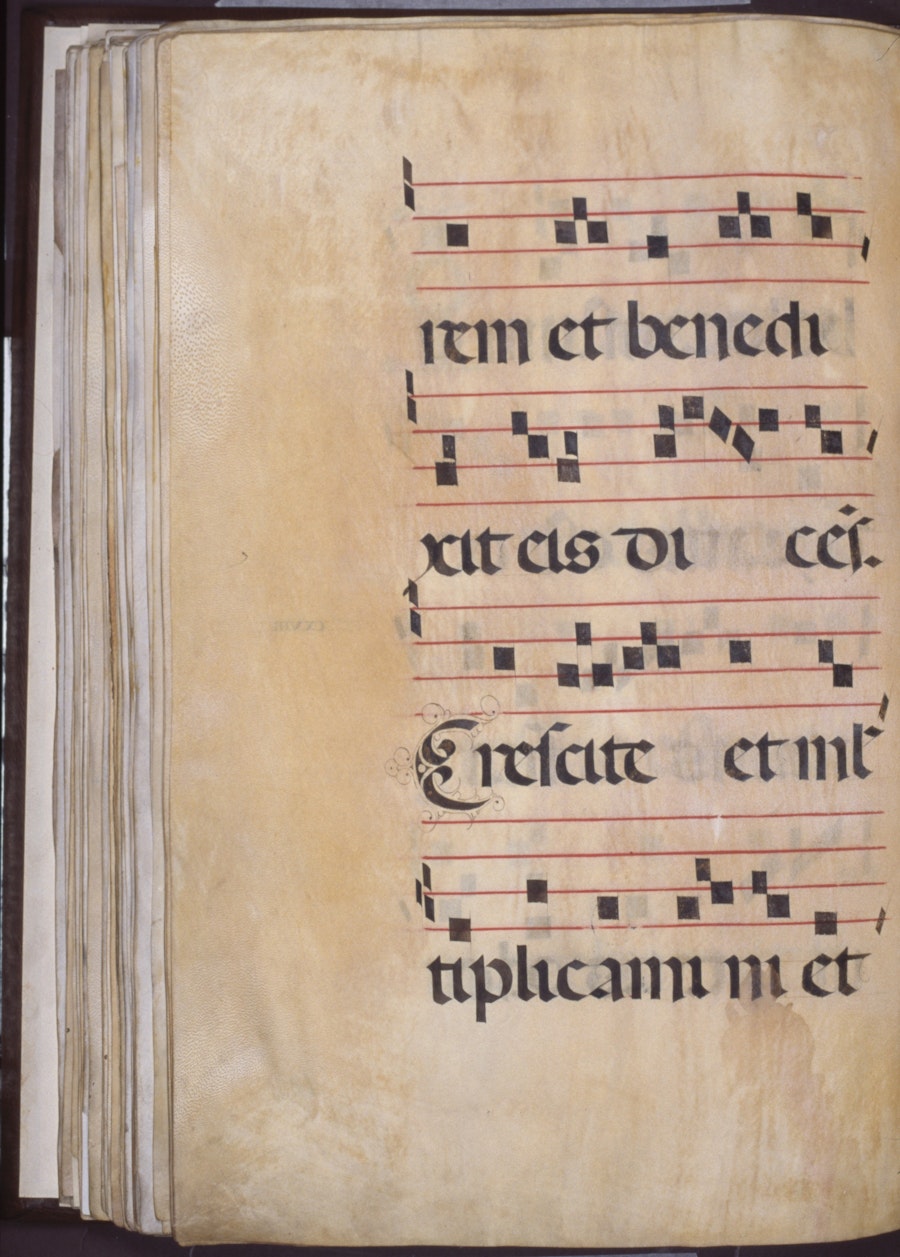 rem et benedi
xit eis di cēs.
Crescite et ml
tiplicamini et